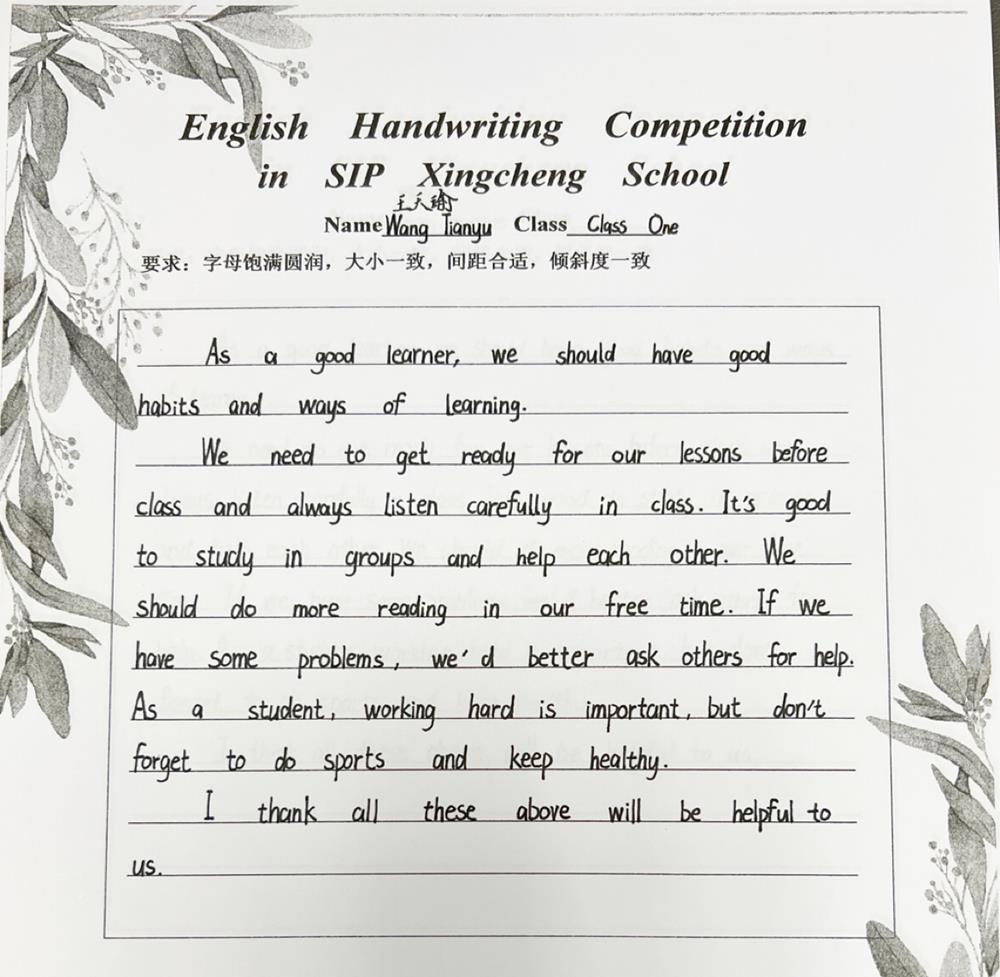 English Handwriting Competition
in SIP Xingcheng School
王天瑜
Name Wang Tianyu Class Class One
要求：字母饱满圆润，大小一致，间距合适，倾斜度一致
As a good learner, we should have good
habits and ways of learning.
We need to get ready for our lessons before
class and always listen carefully in class. It's good
to study in groups and help each other. We
should do more reading in our free time. If we
have some problems, we'd better ask others for help.
As a student, working hard is important, but don't
forget to do sports and keep healthy.
I thank all these above will be helpful to
us.